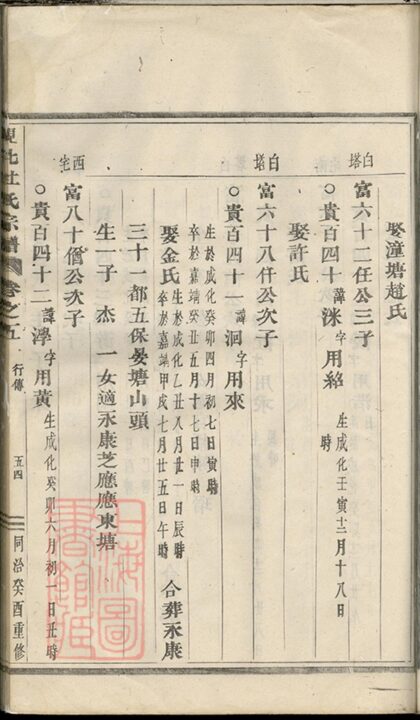 娶潼塘趙氏
白塔
富六十二任公三子
貴百四十諱洣字用紹 生成化壬寅十二月十八日 時
娶許氏
白塔
富六十八仟公次子
貴百四十一諱洄字用來 生於成化癸卯四月初七日寅時 卒於嘉靖癸丑五月十七日申時
娶金氏 生於成化乙丑八月廿一日辰時 卒於嘉靖甲戌七月廿五日午時 合葬永康
三十一都五保晏塘山頭
生一子 杰 一女適永康芝應應東塘
西宅
富八十僧公次子
貴百四十二諱澩字用黃 生成化癸卯六月初一日丑時
杜氏宗譜 卷之五 行傳 五四 同治癸酉重修
上海圖書館藏